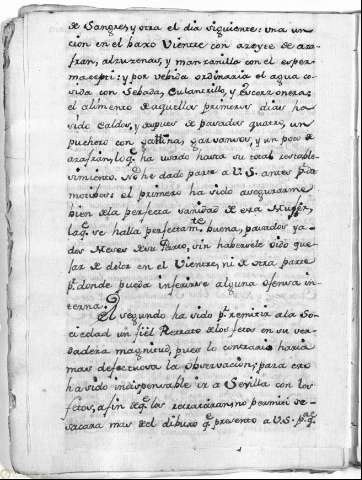 de Sangre, y otra el dia siguiente: una un
cion en el baxo Vientre con azeyte de aza
fran, alzuzenas, y manzanilla con el esper
maceti: y por vebida ordinaria el agua co
sida con Sebada, Culantrillo, y Escorzonera:
el alimento de aquellos primeros dias ha
sido Caldos, y despues de pasados quatro, un
puchero con gallina, garvansos, y un poco de
azafran, lo q.e ha usado hasta su total restable-
simiento. No he dado parte a V.S. antes p.r dos
motibos: el primero ha sido asegurarme
bien de la perfecta sanidad de esta Muger,
la q.e se halla perfectam.te buena, pasados ya
dos Meses de su Parto, sin haversele oido que
jar de dolor en el Vientre, ni de otra parte
p.r donde pueda inferirse alguna ofensa in
terna.
El segundo ha sido p.r remitir a la So
ciedad un fiel Retrato de los fetos en su ver
dadera magnitud, pues lo contrario haria
mas defectuosa la observacion; para esto
ha sido indispensable ir a Sevilla con los
fetos, a fin de q.e los retrataran: no permiti se
sacara mas del dibuxo q.e presento a V.S. p.a q.e